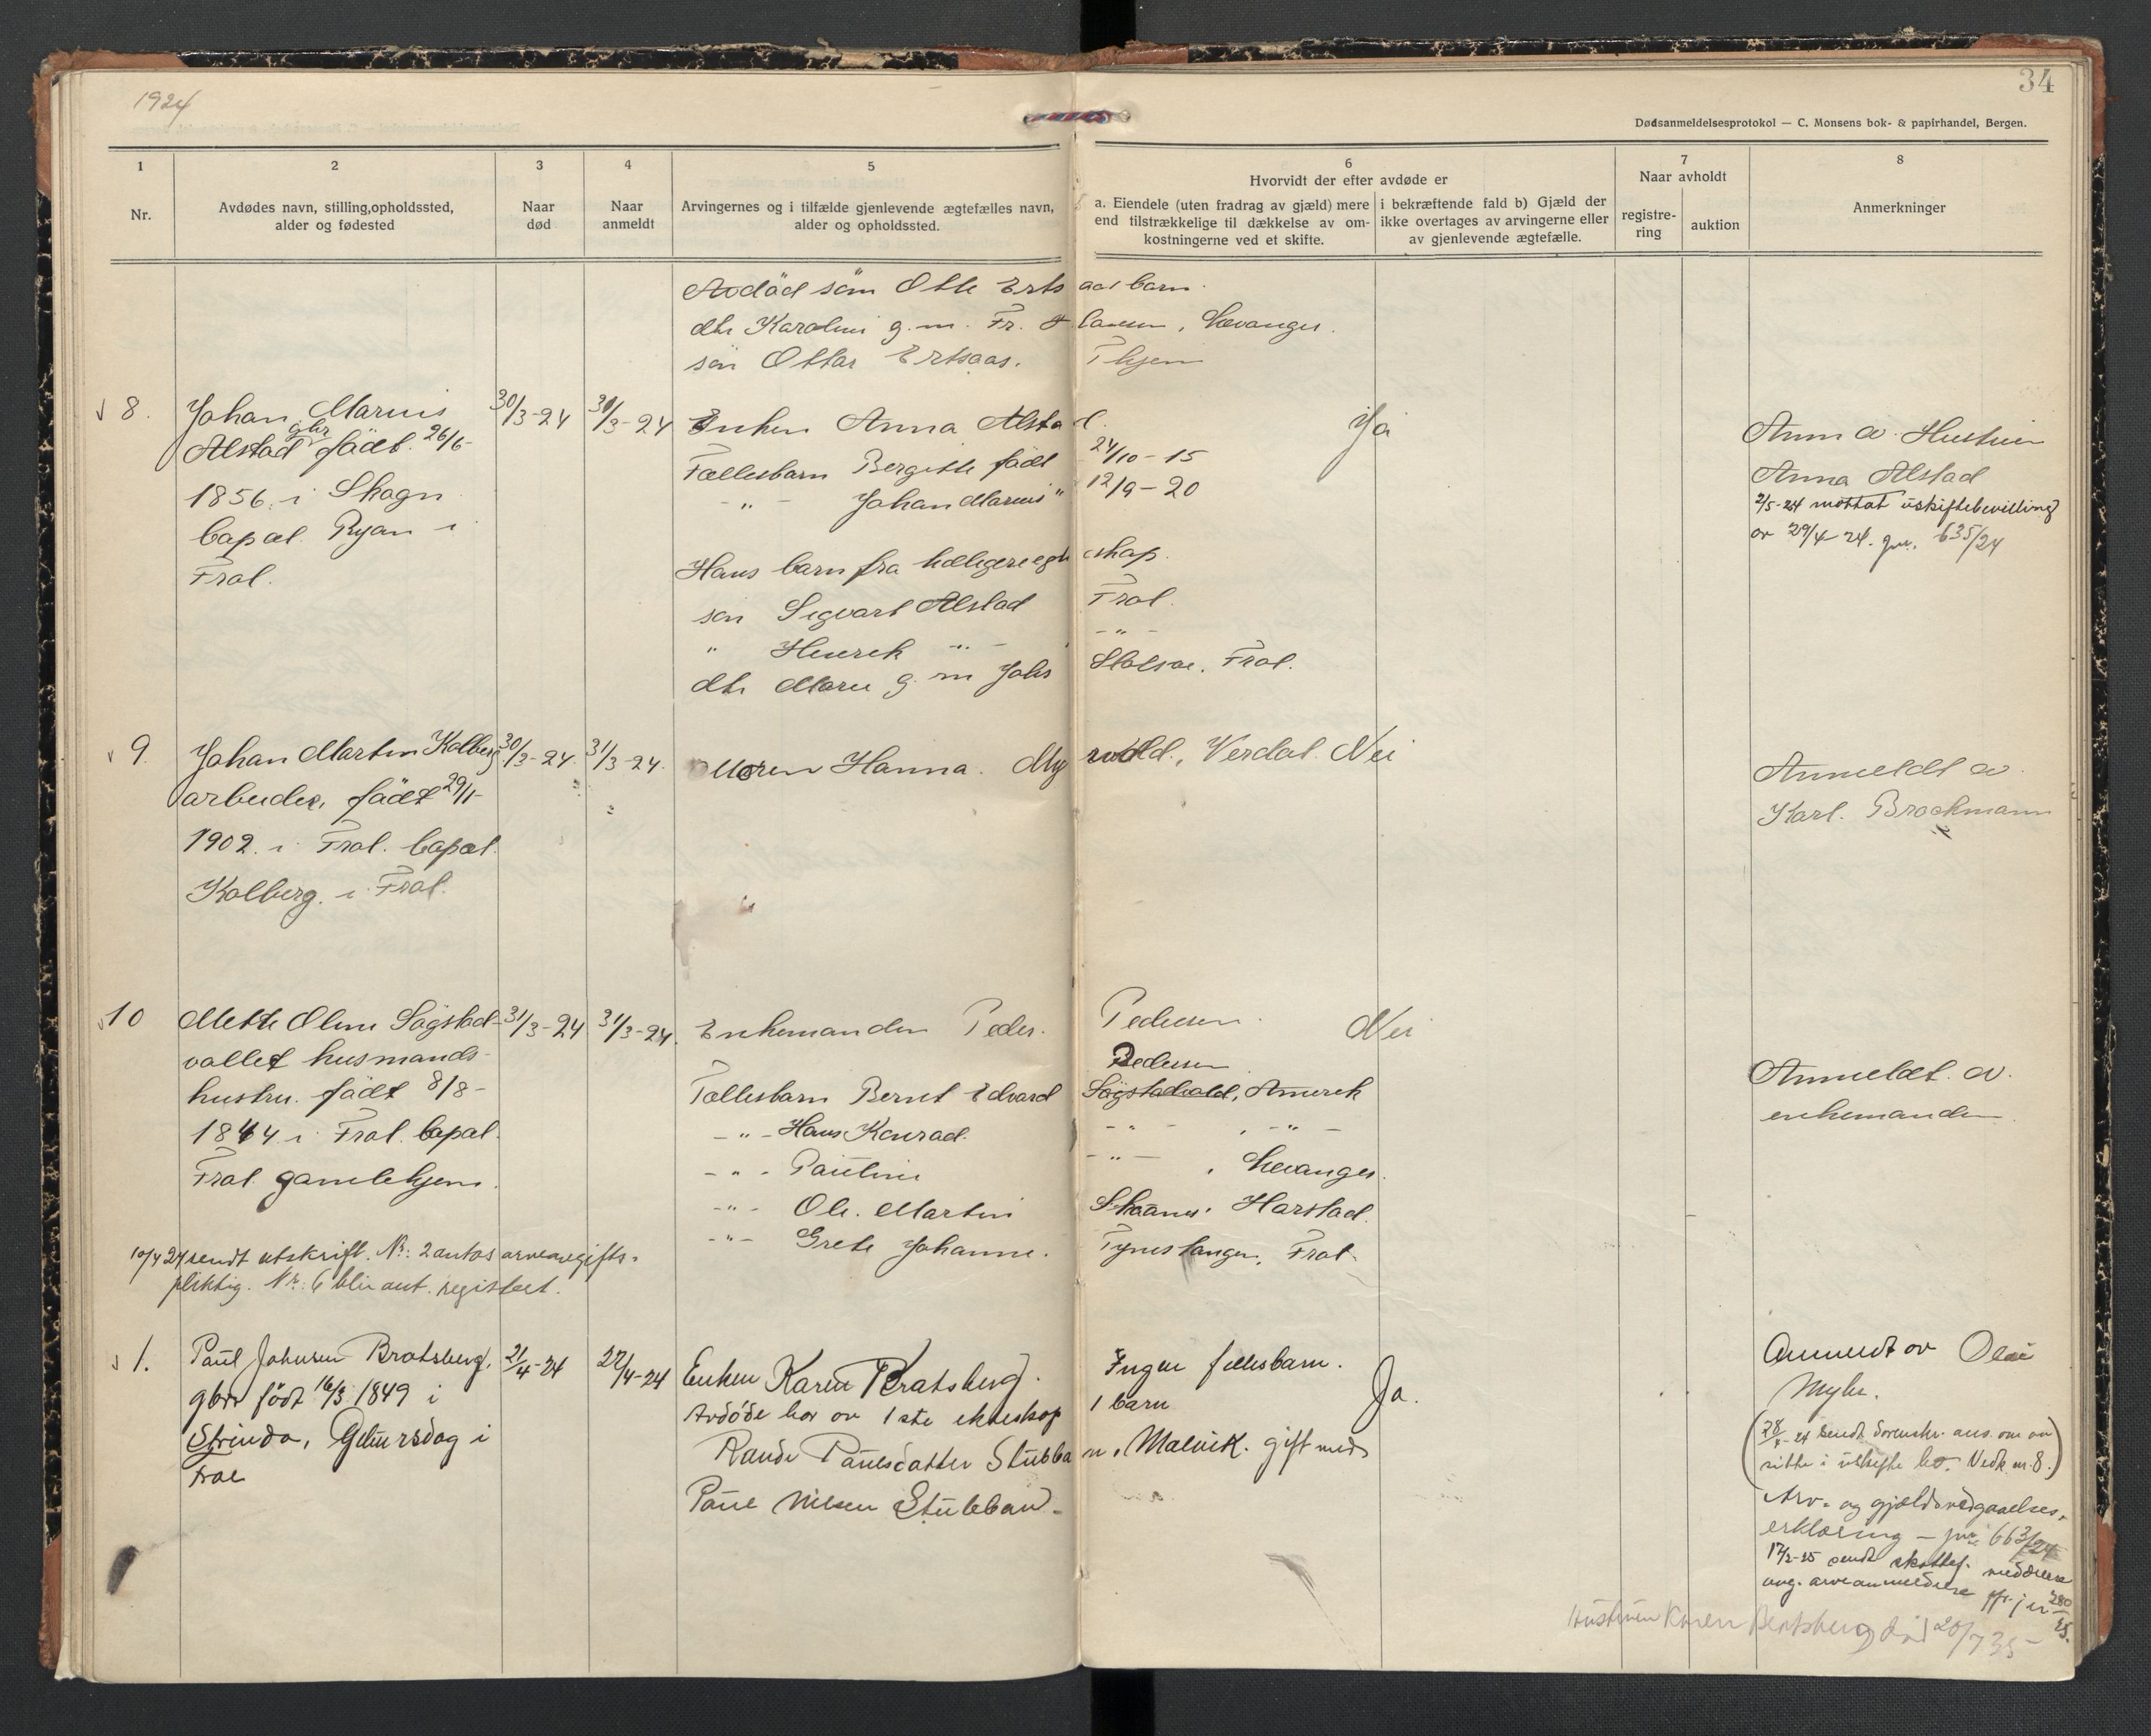 1924
34
Dødsanmeldelsesprotokol — C. Monsens bok- & papirhandel, Bergen.
1 2 3 4 5 6 7 8
Nr.
Avdødes navn, stilling, opholdssted,
alder og fødested
Naar
død
Naar
anmeldt
Arvingernes og i tilfælde gjenlevende ægtefælles navn,
alder og opholdssted.
Hvorvidt der efter avdøde er
a. Eiendele (uten fradrag av gjæld) mere
end tilstrækkelige til dækkelse av om-
kostningerne ved et skifte.
i bekræftende fald b) Gjæld der
ikke overtages av arvingerne eller
av gjenlevende ægtefælle.
Naar avholdt
registre-
ring
auktion
Anmerkninger
Avdöd sön Otte Ertsaas barn.
dtr Karolini g.m. Fr. Levanger.
sön Ottar Ertsaas.
8.
Johan Marius
Alstad gbr födt 26/6-
1856. i Skogn
bopæl Ryan i
Frol.
30/3-24
30/3-24
Enken Anna Alstad.
Fællesbarn Bergitte født 24/10-15
-"- Johan Marius " 12/9-20
Hans barn fra tidligere egteskap.
sön Sigvart Alstad Frol.
" Henrek -"- -"-
dtr Maren g. m Johs Frol.
Ja
Anm av. Hustruen
Anna Alstad
2/5-24 mottat uskiftebevilling
av 29/4-24. jnr. 635/24
9.
Johan Martin Kolberg
arbeider, födt 29/1-
1902. i Frol. bopæl.
Kolberg. i Frol.
30/3-24.
31/3-24.
Moren Hanna. Myrvold., Verdal.
Nei
Anmeldt av.
Karl. Brockmann
10
Mette Oline Sögstad-
vollet husmands-
hustru. födt 8/8-
1844 i Frol. bopæl.
Frol. gamlehjem.
31/3-24
31/3-24.
Enkemanden Peder. Pedersen.
Pedersen
Fællesbarn Bernt Edvard Sögstadvald, Amerek
-"- Hans Konrad. -"- , -"-
-"- Pauline -"- , Levanger.
-"- Ole. Martin Skaanes. Harstad.
-"- Grete Johanne. Tynestangen, Frol.
Nei
Anmeldt. av.
enkemanden
10/4 24 sendt utskrift. Nr: 2 antas arveavgifts-
pliktig. Nr: 6 blir ant. registert.
1.
Paul Johnsen Bratsberg,
gbr født 16/3 1849 i
Strinda,
Frol
21/4-24
22/4-24
Enken Karen Bratsberg. Ingen fellesbarn.
Avdøde har av 1ste ekteskap 1 barn
Randi Paulsdatter Stubban, Malvik. gift med
Paul Nilsen Stubban.
Ja.
Anmeldt av
Myhr.
28/4-24 sendt sorenskr. ans. om aa
sitte i uskifte bo. Vedk nr. 8.
Arv- og gjældsvedgaaelses-
erklæring — jnr 663/24
17/2-25 sendt skattef. meddelelse
ang. arveanmeldelse jfr. jnr 280/25.
Hustruen Karen Bratsberg död 20/7 35-